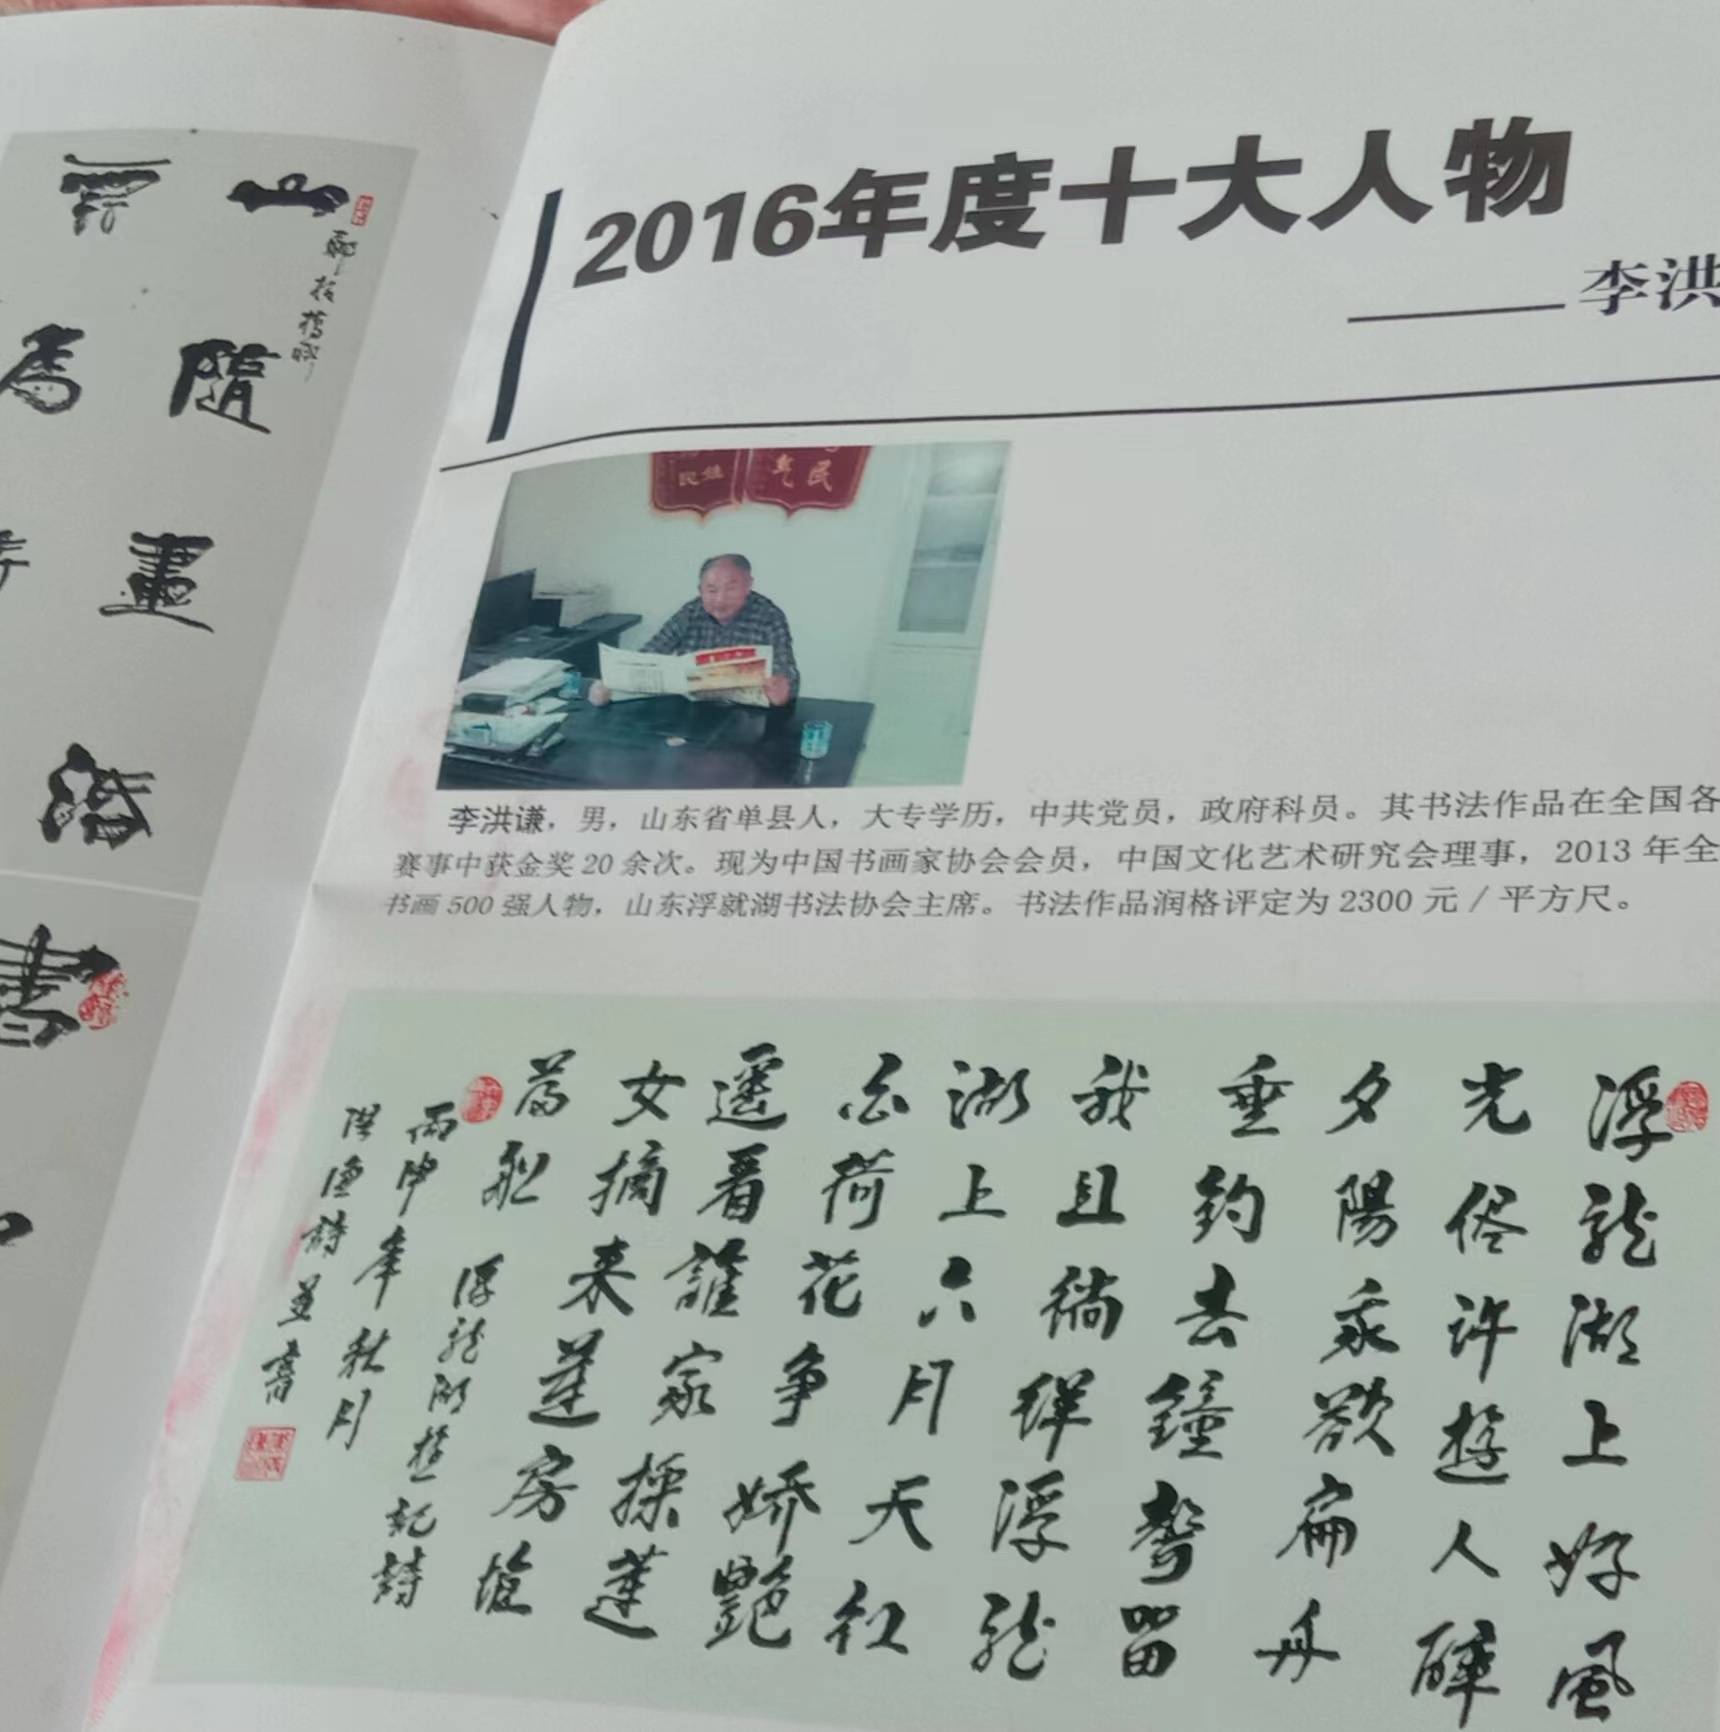 山隨畫活
書
2016年度十大人物
——李洪
民
气民
李洪谦，男，山东省单县人，大专学历，中共党员，政府科员。其书法作品在全国各
赛事中获金奖 20 余次。现为中国书画家协会会员，中国文化艺术研究会理事，2013 年全
书画 500 强人物，山东浮龙湖书法协会主席。书法作品润格评定为 2300 元 / 平方尺。
浮龍湖上好風
光许遊人醉
夕陽乘欲扁舟
垂钓去鐘聲留
我且徜徉浮龍
湖上六月天红
白荷花争娇艷
遥看誰家採蓮
女摘来蓮房堆
船
浮龍湖遊記詩
丙申年秋月
洪谦詩並書